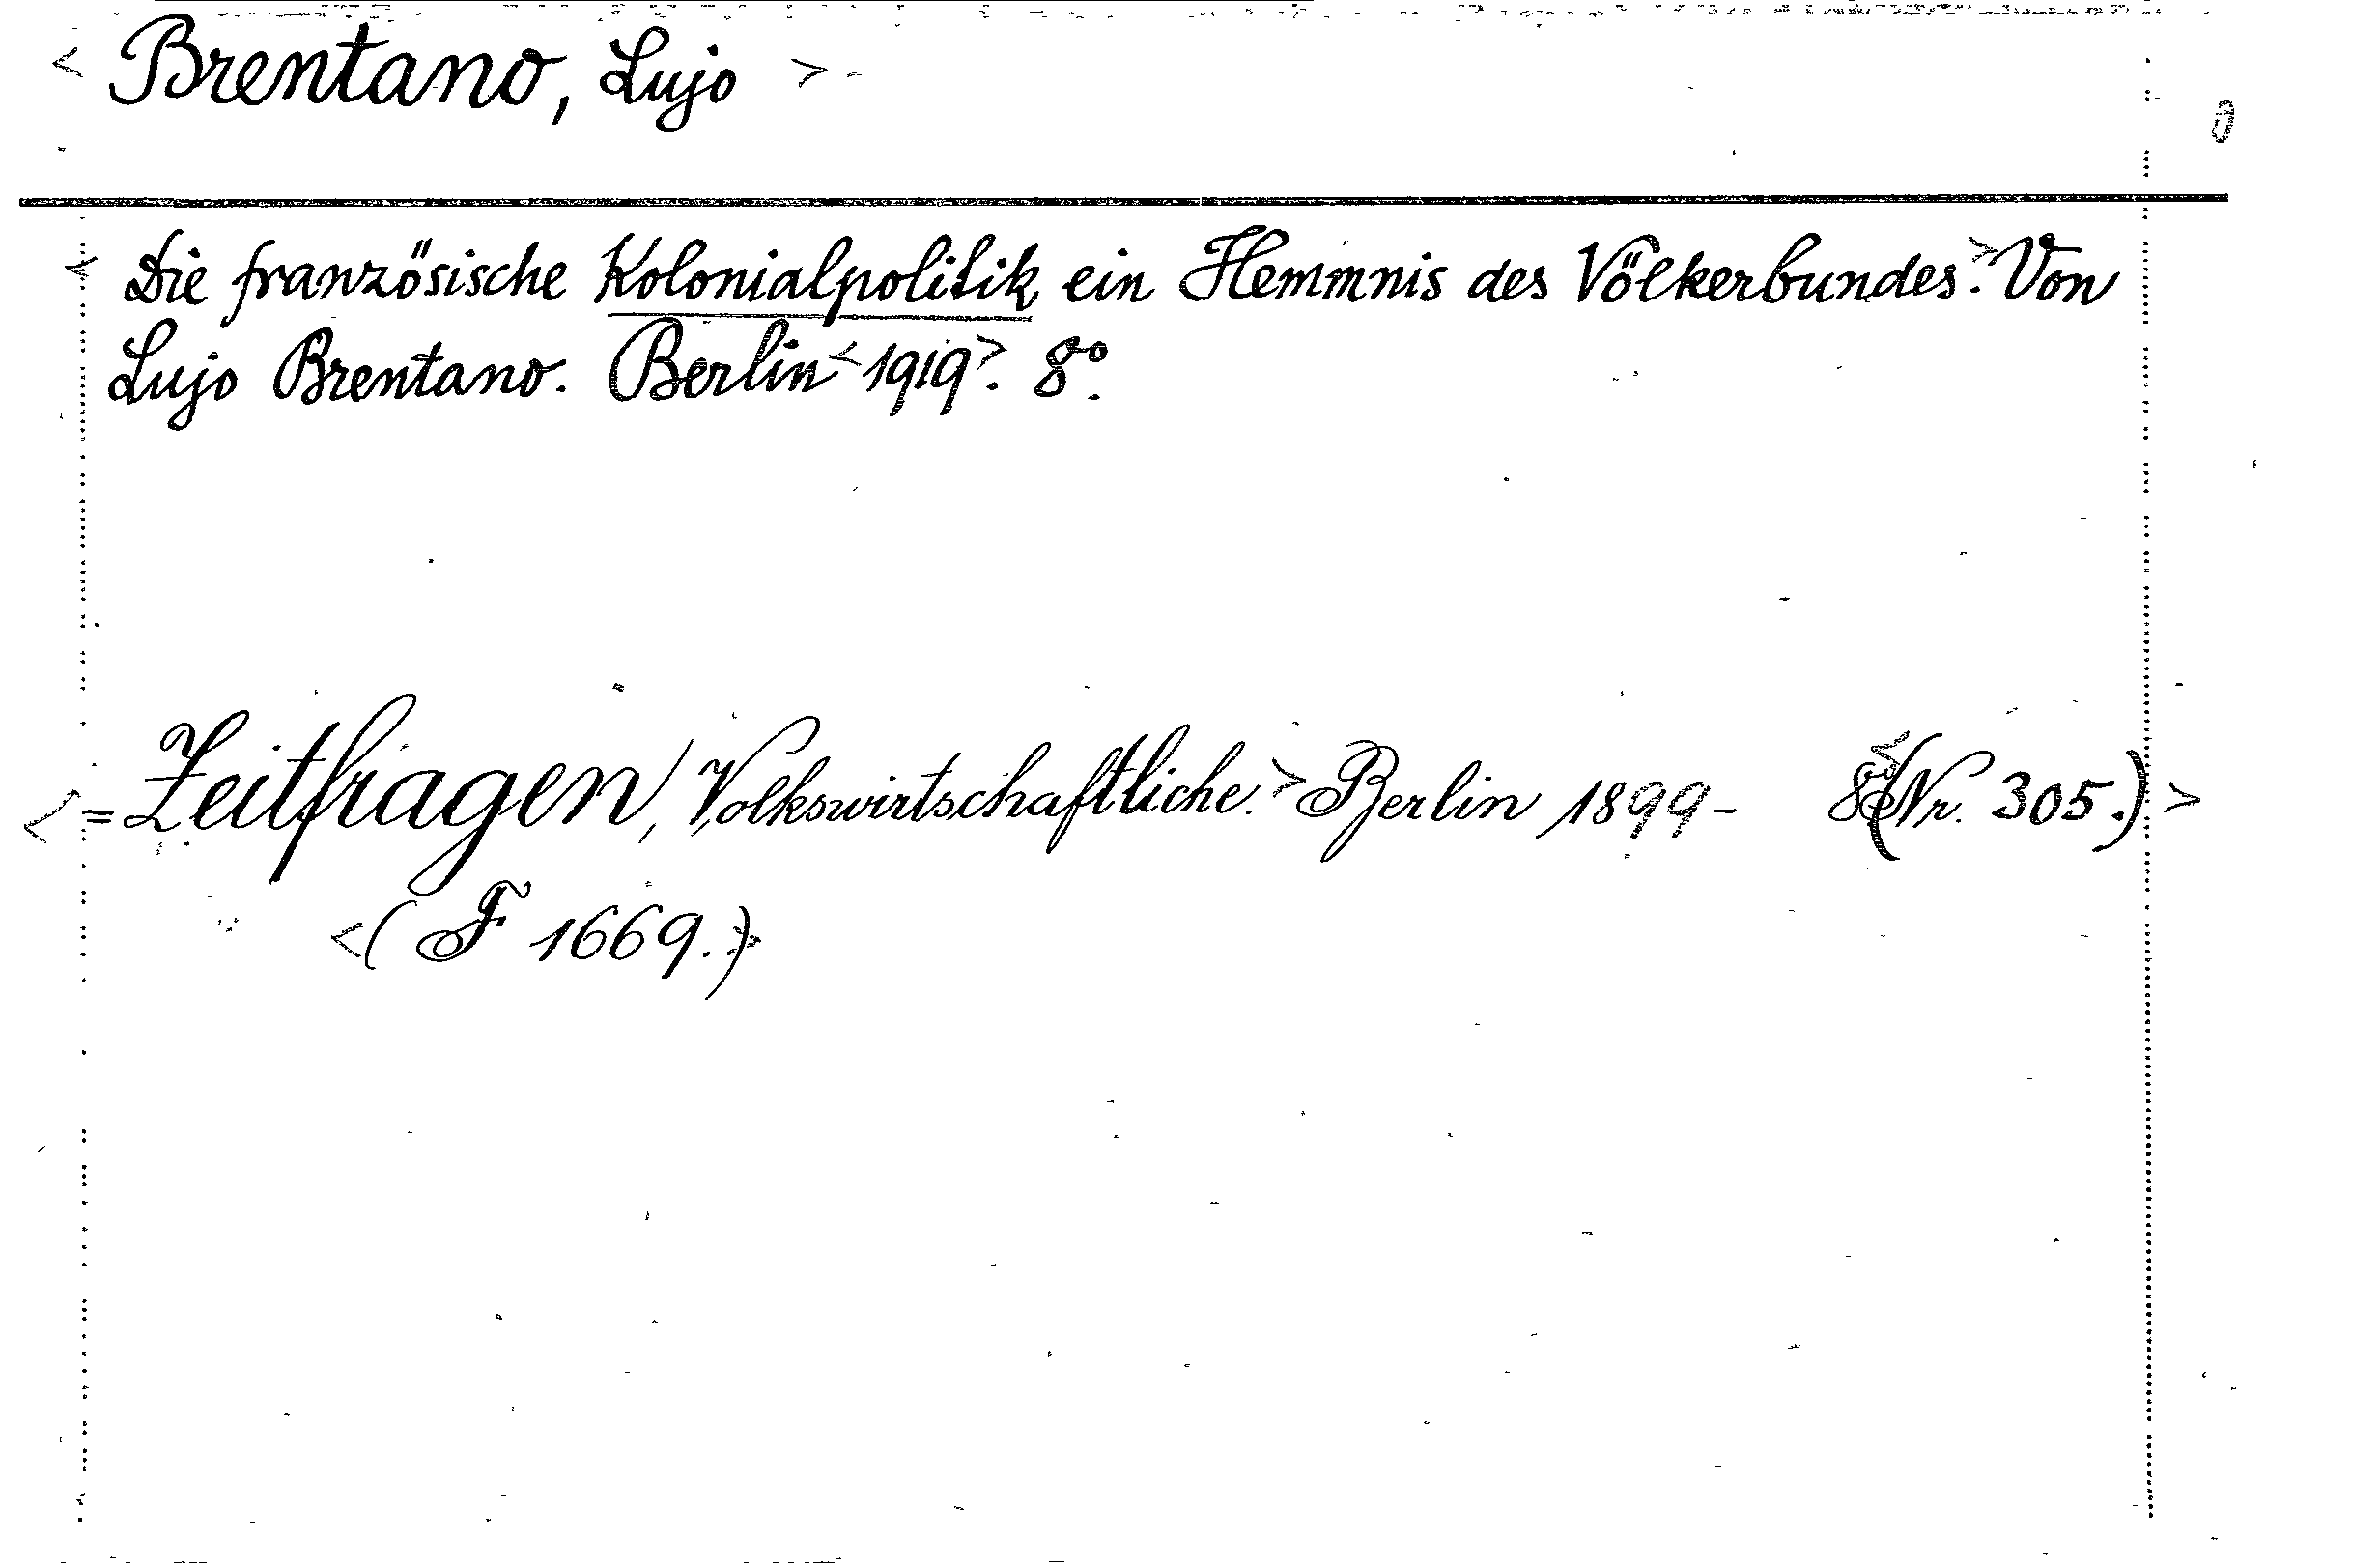 < Brentano, Lujo >
< Die französische Kolonialpolitik ein Hemmnis des Völkerbundes.> Von
Lujo Brentano. Berlin <1919>. 8°.
< = Zeitfragen, Volkswirtschaftliche.> Berlin 1899- 8° <(Nr. 305.) >
<( F 1669.)>